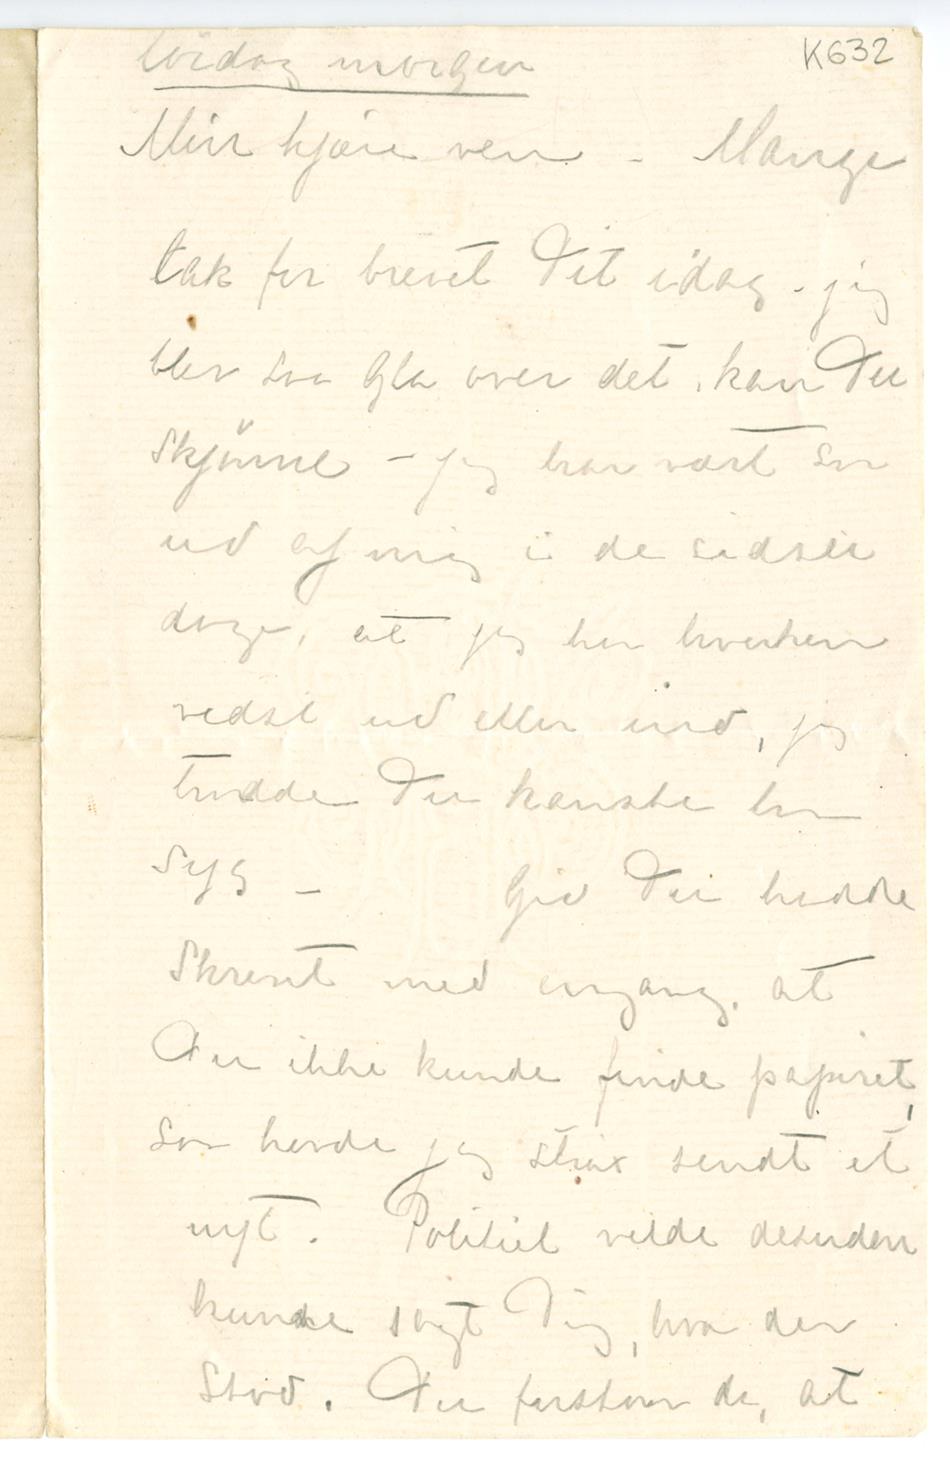 K632
Lördag morgen
Min kjære ven - Mange
tak for brevet Dit idag - jeg
blev saa gla over det, kan Du
skjönne - jeg har vært saa
ud af mig i de sidste
dage, at jeg har hverken
vidst ud eller ind, jeg
trodde Du kanske var
syg - Gid Du hadde
skrevet med engang, at
Du ikke kunde finde papiret,
saa havde jeg strax sendt et
nyt. Politiet vilde desuden
kunde sagt Dig, hva der
stod. Du forstaar da, at